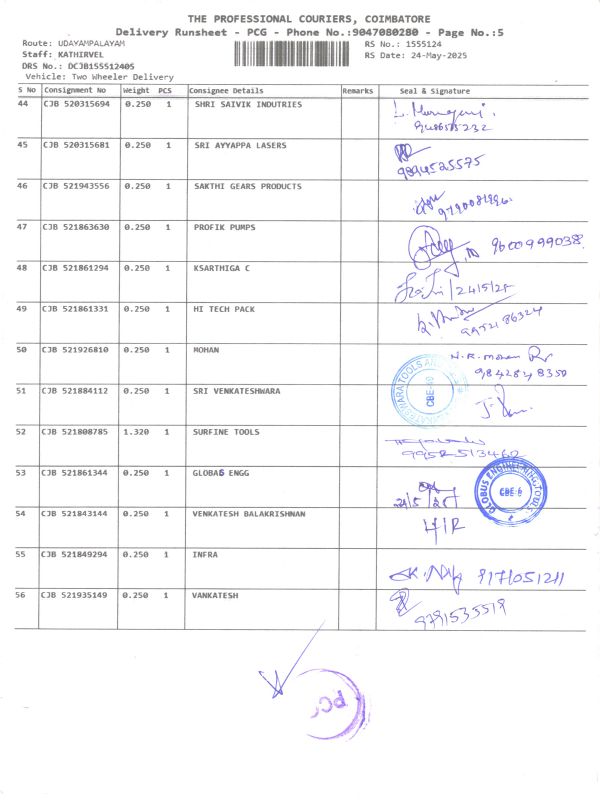 THE PROFESSIONAL COURIERS, COIMBATORE
Delivery Runsheet - PCG - Phone No.:9047080280 - Page No.:5
Route: UDAYAMPALAYAM RS No.: 1555124
Staff: KATHIRVEL RS Date: 24-May-2025
DRS No.: DCJB155512405
Vehicle: Two Wheeler Delivery
S No Consignment No Weight PCS Consignee Details Remarks Seal & Signature
44 CJB 520315694 0.250 1 SHRI SAIVIK INDUTRIES
45 CJB 520315681 0.250 1 SRI AYYAPPA LASERS
9894525575
46 CJB 521943556 0.250 1 SAKTHI GEARS PRODUCTS
47 CJB 521863630 0.250 1 PROFIK PUMPS
9600999038
48 CJB 521861294 0.250 1 KSARTHIGA C
24/5/25
49 CJB 521861331 0.250 1 HI TECH PACK
9952186324
50 CJB 521926810 0.250 1 MOHAN N.R. Mohan
9842848350
51 CJB 521884112 0.250 1 SRI VENKATESHWARA
52 CJB 521808785 1.320 1 SURFINE TOOLS
9952513462
53 CJB 521861344 0.250 1 GLOBAS ENGG
GLOBUS ENGINEERING TOOLS
CBE-6
24/5/25
54 CJB 521843144 0.250 1 VENKATESH BALAKRISHNAN
55 CJB 521849294 0.250 1 INFRA
9171051211
56 CJB 521935149 0.250 1 VANKATESH
9791535519
PCG